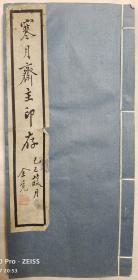 寒月齋主印存
乙丑放月
金光
0 Pro · ZEISS
7 20:53